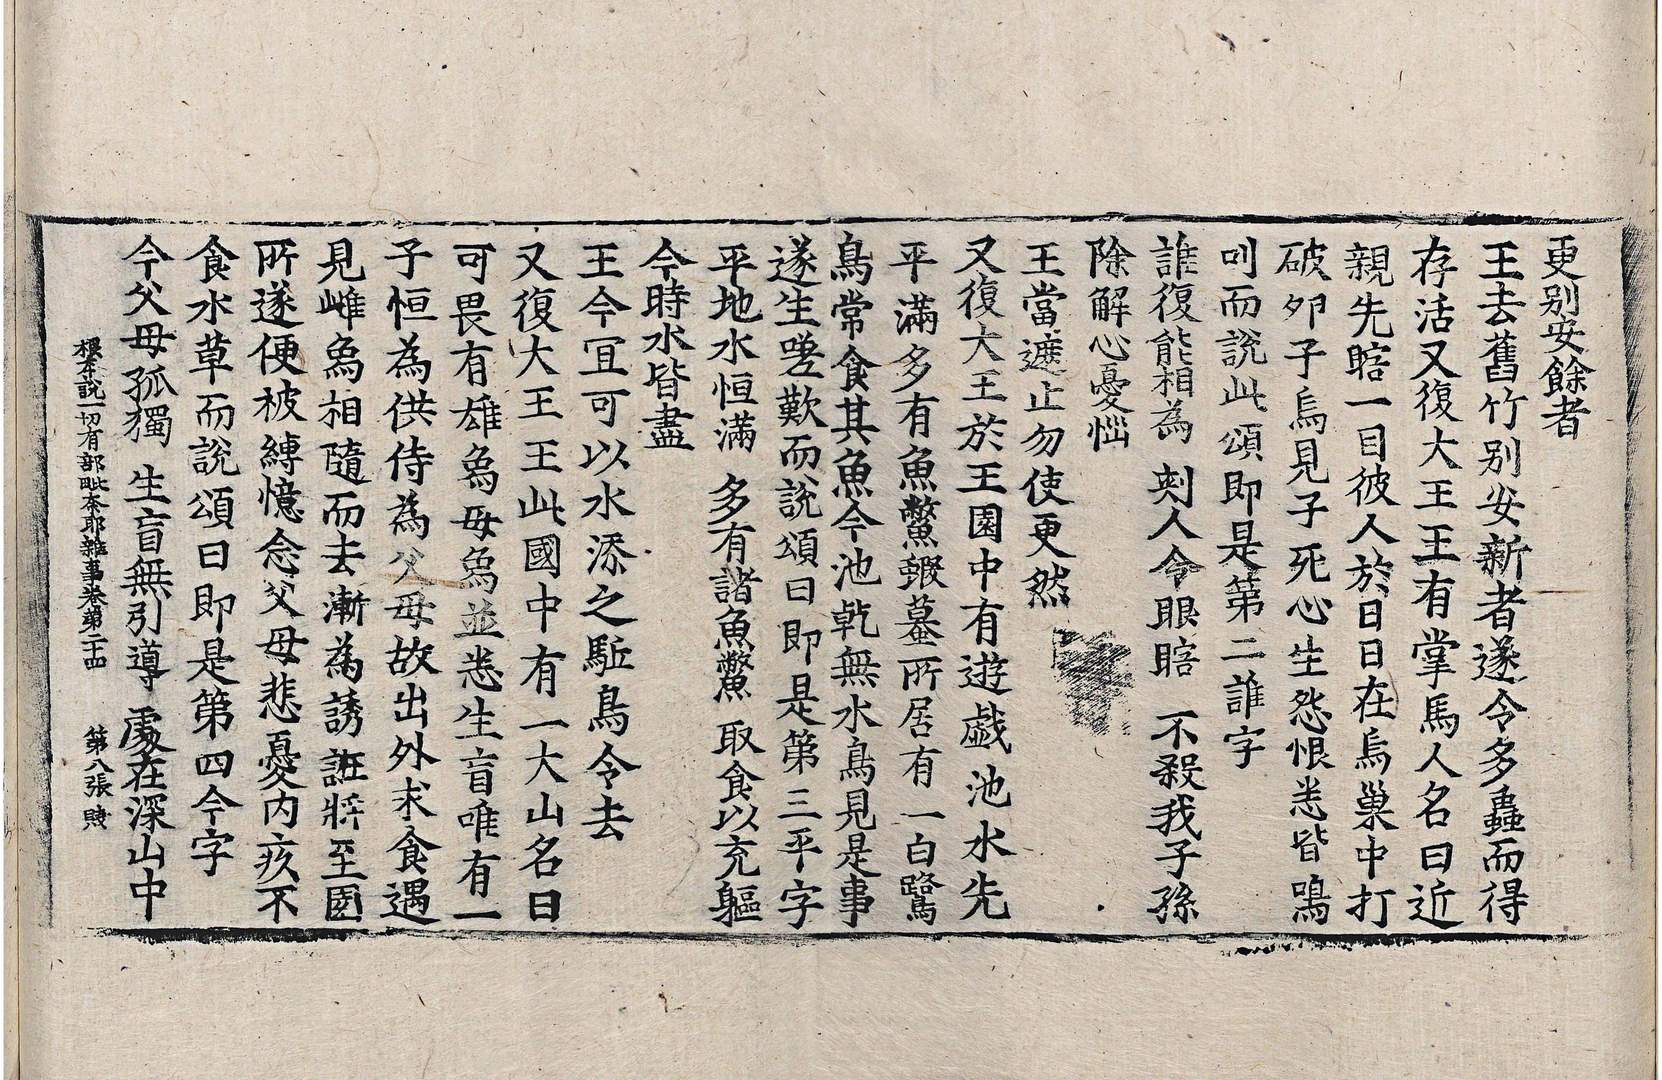 更別安餘者
王去舊竹別安新者遂令多蟲而得
存活又復大王王有掌馬人名曰近
親先瞎一目彼人於日日在烏巢中打
破夘子烏見子死心生怨恨悉皆鳴
叫而說此頌即是第二誰字
誰復能相為 刾人令眼瞎 不殺我子孫
除解心憂惱
王當遮止勿使更然
又復大王於王園中有遊戲池水先
平滿多有魚鱉蝦蟇所居有一白鷺
鳥常食其魚今池乾無水鳥見是事
遂生嗟歎而說頌曰即是第三平字
平地水恒滿 多有諸魚鱉 取食以充軀
今時水皆盡
王今冝可以水添之駈鳥令去
又復大王此國中有一大山名曰
可畏有雄象母象並悉生盲唯有一
子恒為供侍為父母故出外求食遇
見雌象相隨而去漸為誘誑將至國
所遂便被縛憶念父母悲憂內疚不
食水草而說頌曰即是第四今字
今父母孤獨 生盲無引導 處在深山中
根本說一切有部毗奈耶雜事卷第二十四 第八張 賤